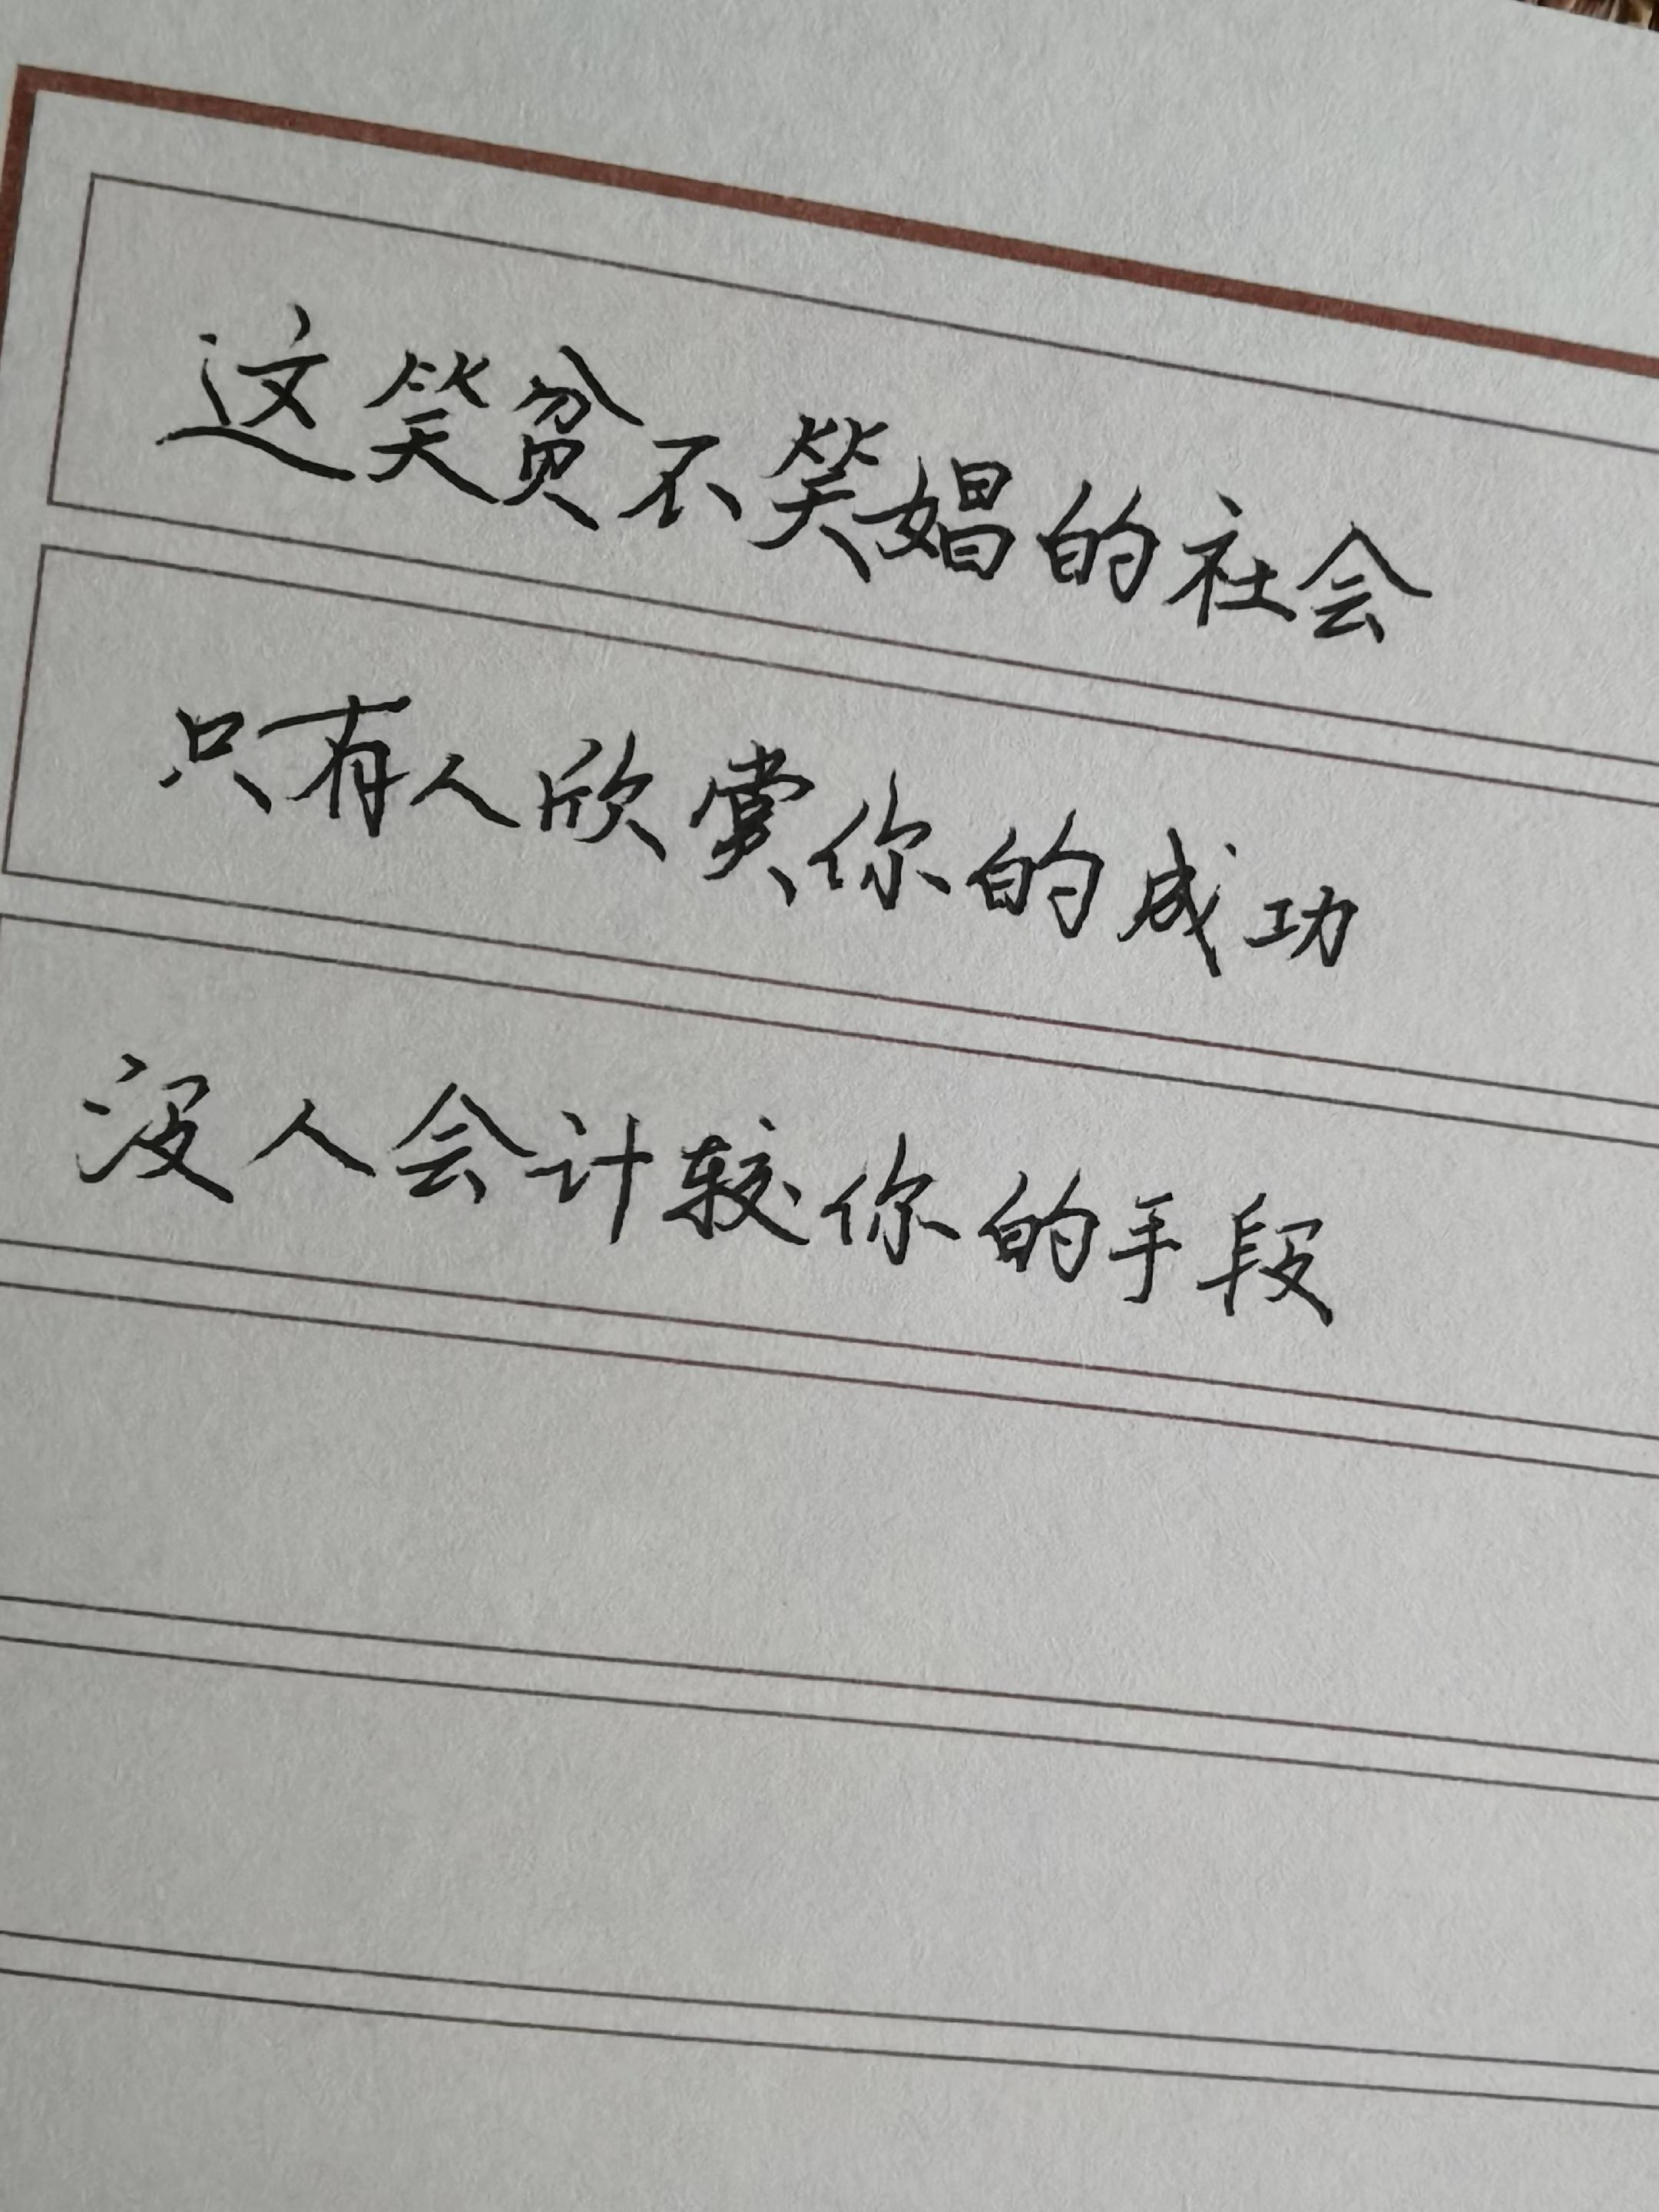 这笑贫不笑娼的社会
只有人欣赏你的成功
没人会计较你的手段